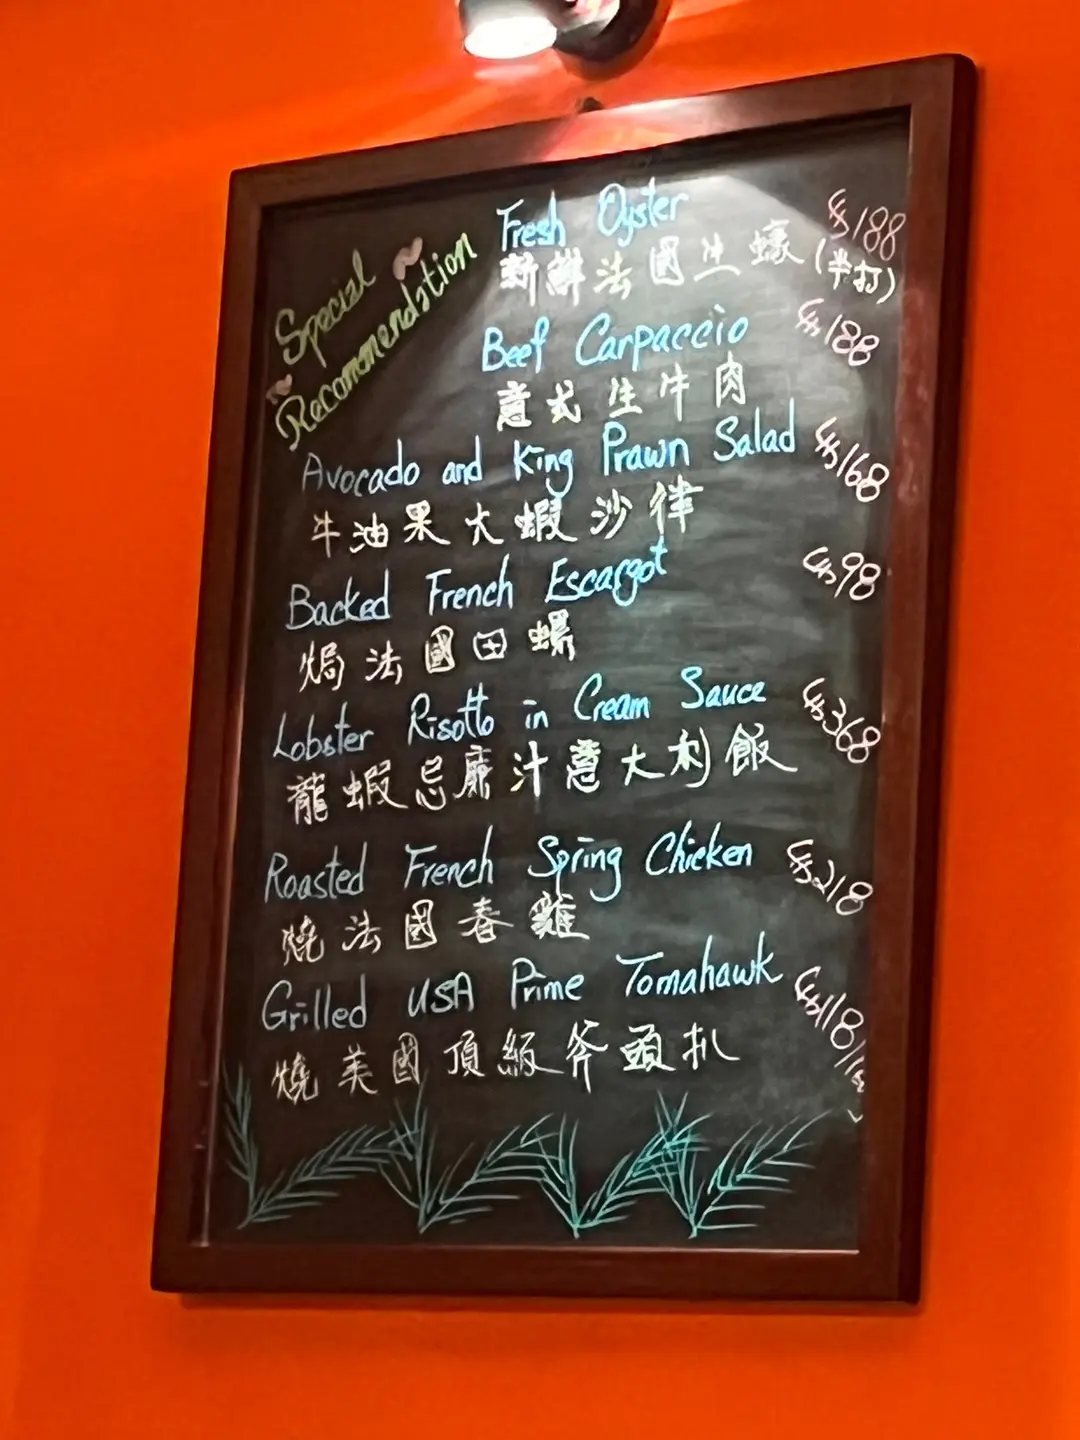 Special
Recommendation
Fresh Oyster $188
新鮮法國生蠔(半打)
Beef Carpaccio $188
意式生牛肉
Avocado and King Prawn Salad $168
牛油果大蝦沙律
Backed French Escargot $98
焗法國田螺
Lobster Risotto in Cream Sauce $368
龍蝦忌廉汁意大利飯
Roasted French Spring Chicken $218
燒法國春雞
Grilled USA Prime Tomahawk $118/
燒美國頂級斧頭扒